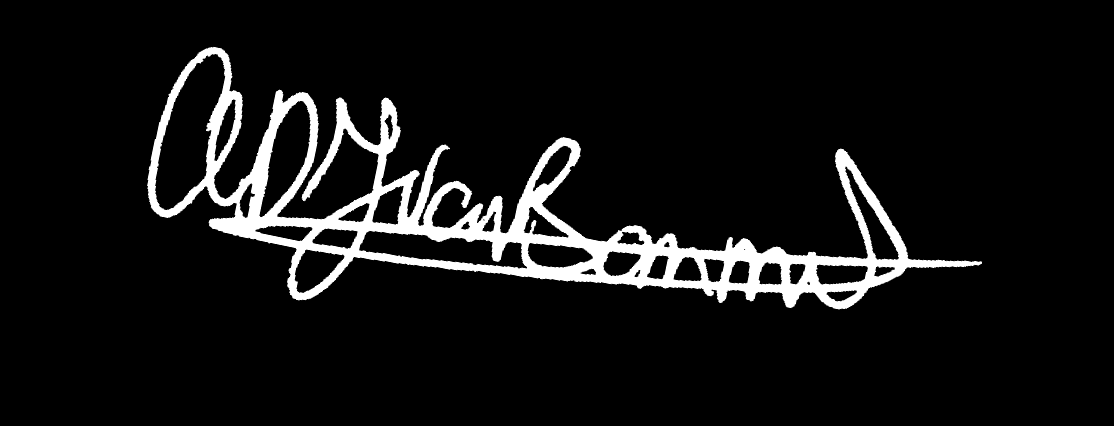 ADJ van Bommel